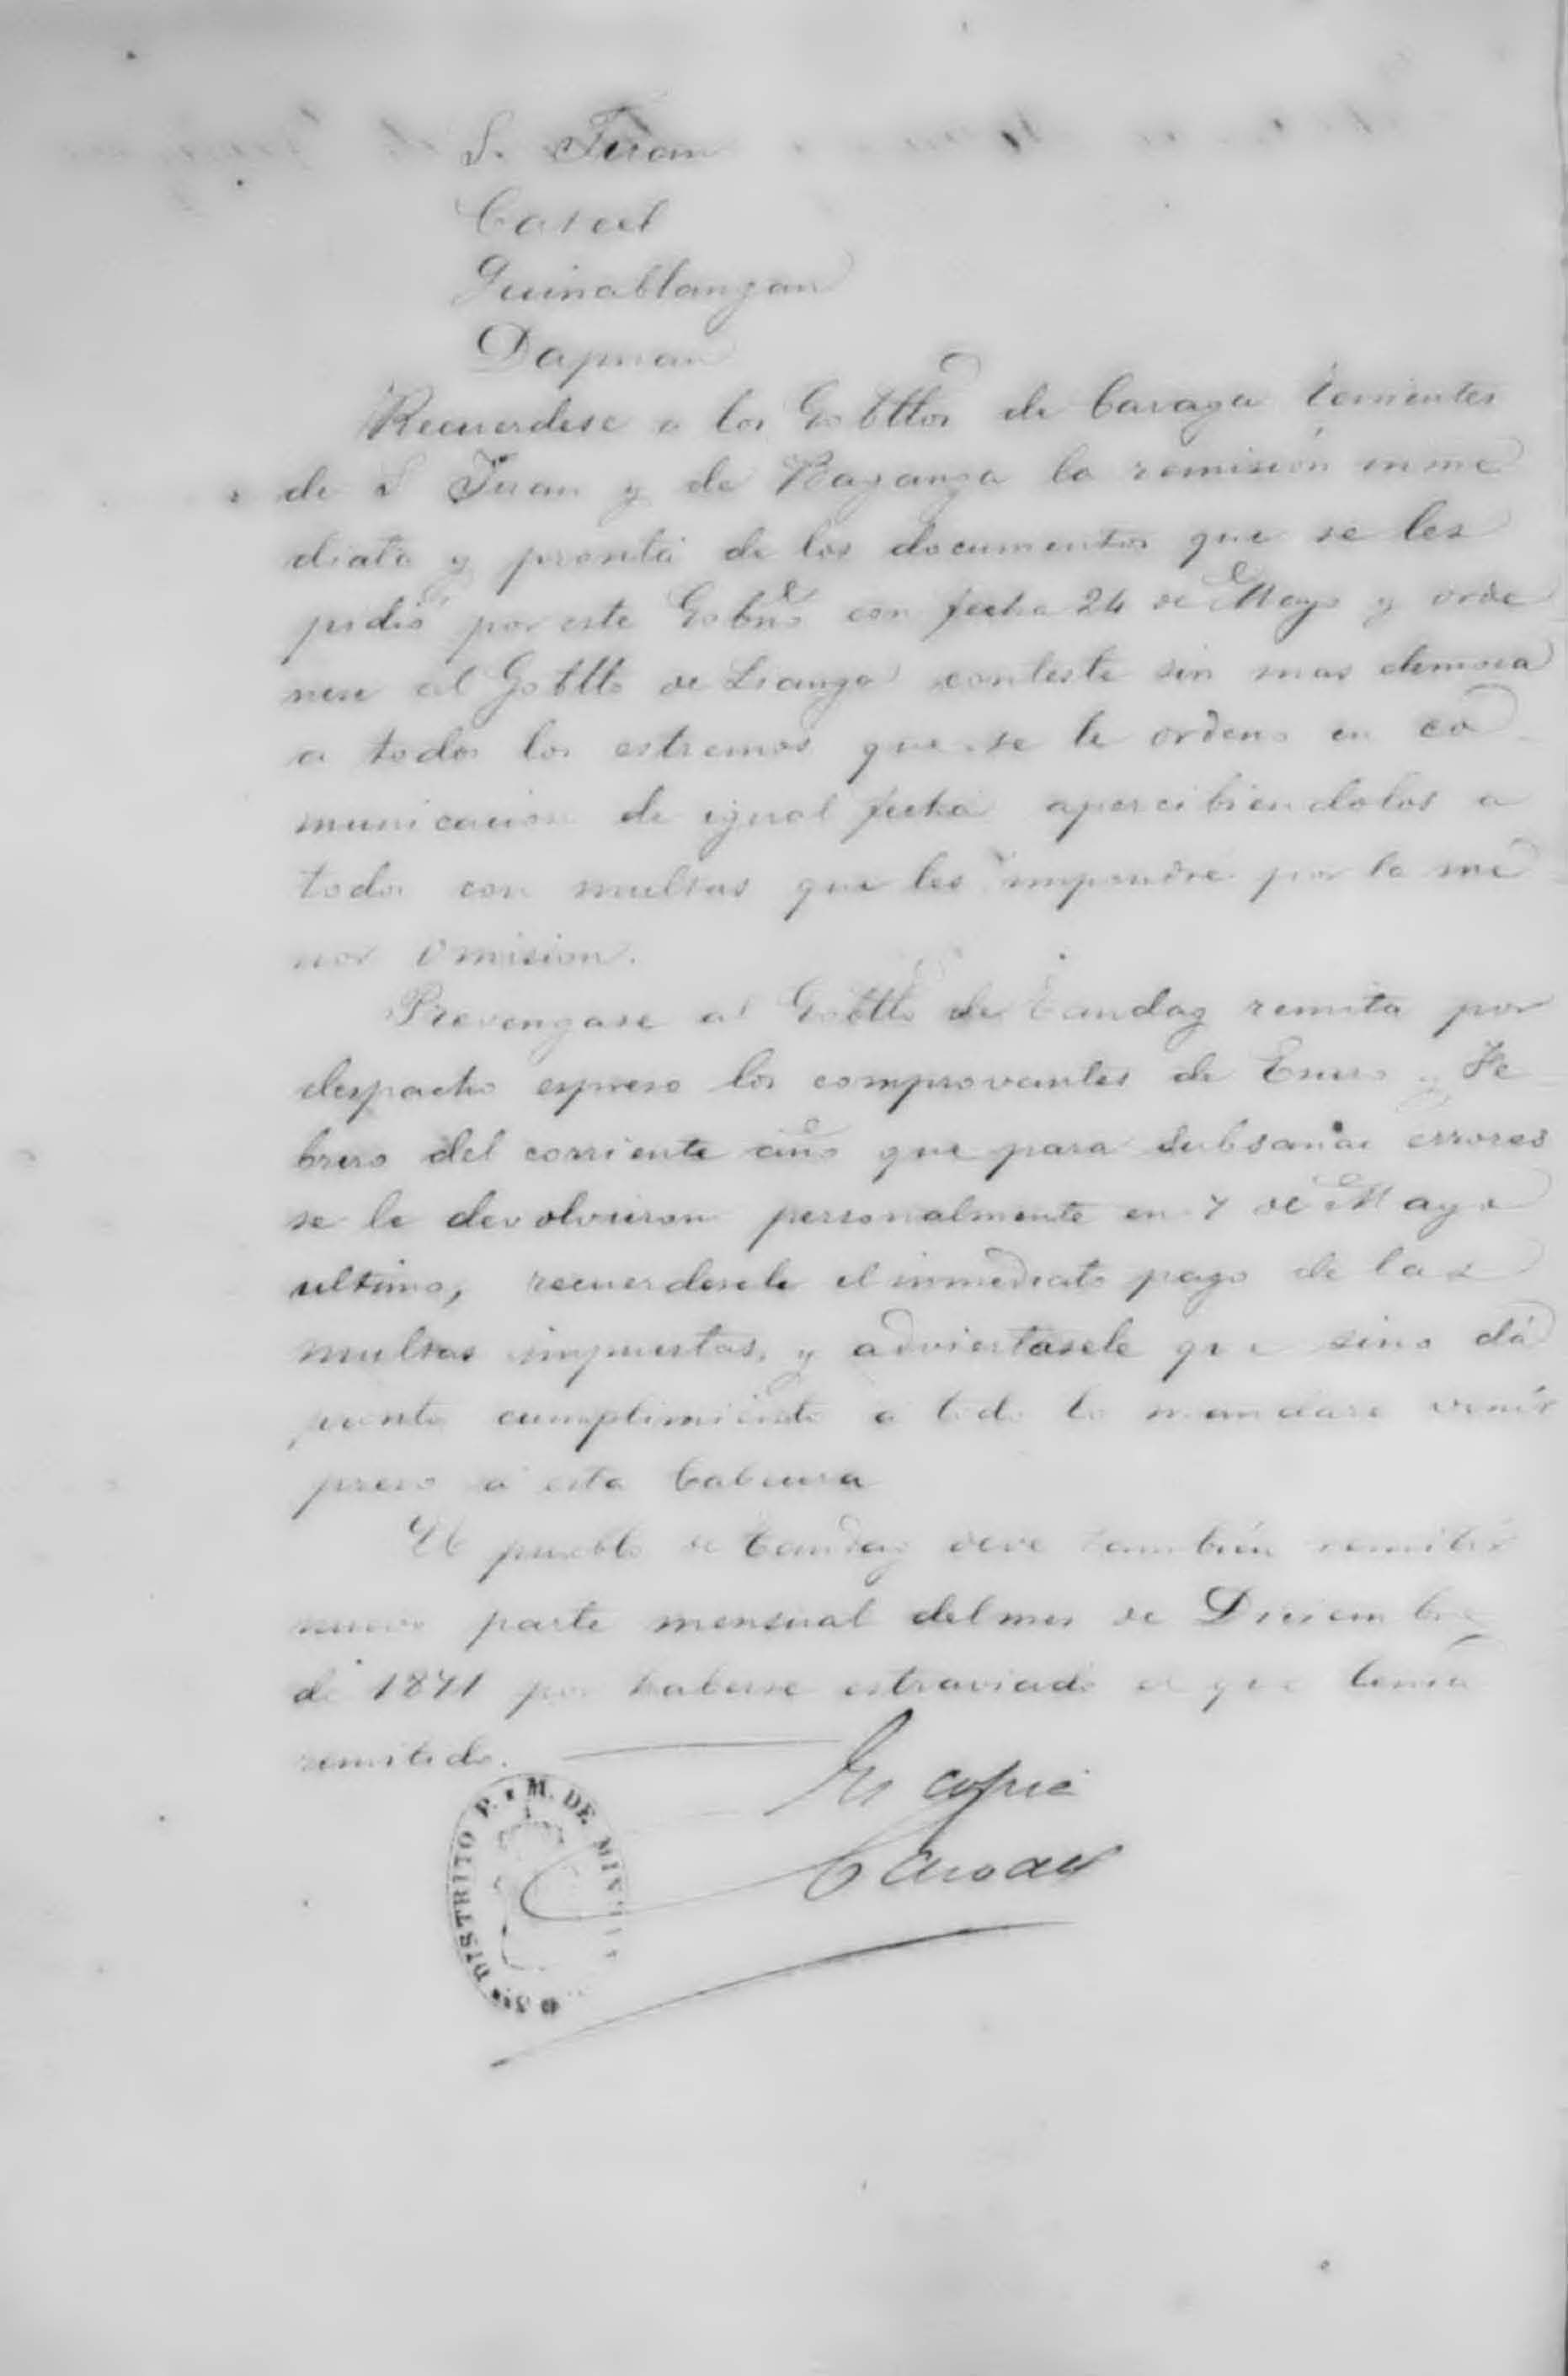 S. Juan
Cateel
Quinablangan
Dapnan
Recuerdese a los Gobttos de Caraga tenientes
de S Juan y de Baganga la remisión inme
diata y pronta de los documentos que se les
pidió por este Gobno con fecha 24 de Mayo y orde
nese al Gobtto de Lianga conteste sin mas demora
a todos los estremos que se le ordeno en co
municacion de igual fecha apercibiendolos a
todos con multas que les impondre por la me
nor omision.
Prevengase al Gobtto de Tandag remita por
despacho espreso los comprovantes de Enero y Fe
brero del corriente año que para subsanar errores
se le devolvieron personalmente en 7 de Mayo
ultimo, recuerdesele el inmediato pago de las
multas impuestas, y adviertasele que sino dá
pronto cumplimiento a todo lo mandare venir
preso a esta Cabecera
El pueblo de Tandag deve tambien remitir
nuevo parte mensual del mes de Diciembre
de 1871 por haberse estraviado el que tenia
remitido.
Es copia
DISTRITO P. M. DE